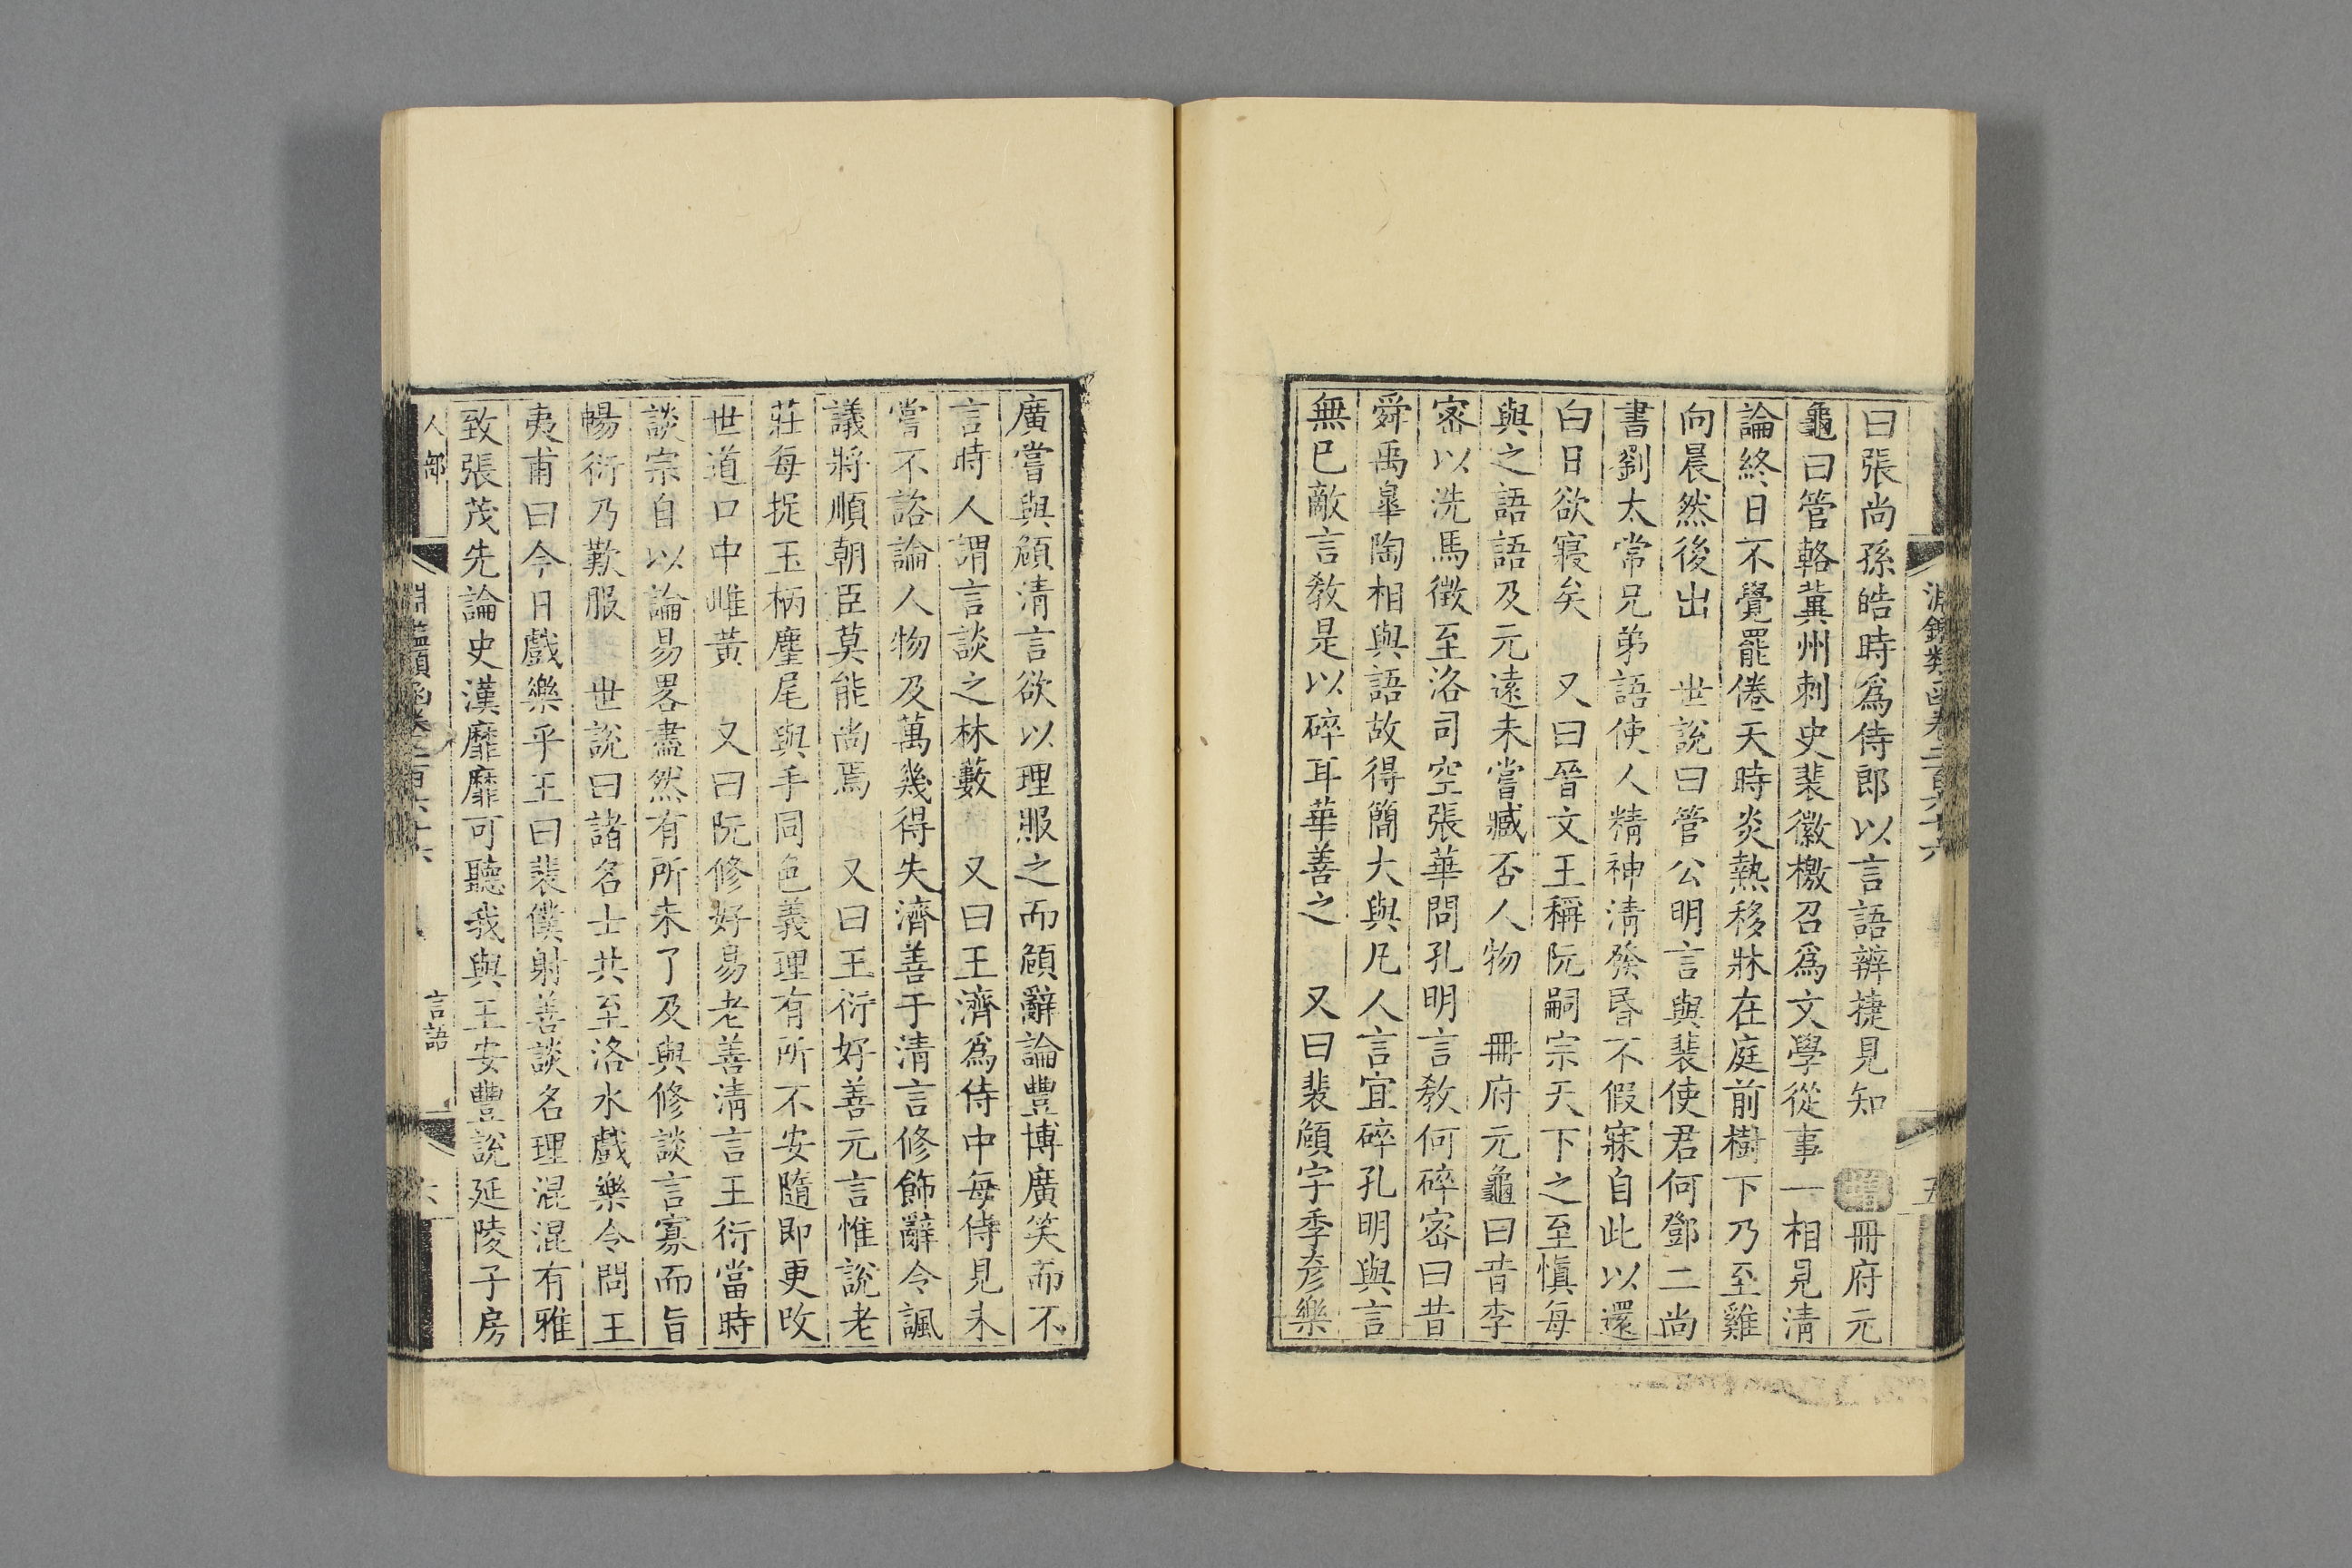 淵鑑類函卷二百六十六
五
曰張尚孫皓時爲侍郎以言語辨捷見知 增 冊府元
龜曰管輅冀州刺史裴徽檄召爲文學從事一相見清
論終日不覺罷倦天時炎熱移牀在庭前樹下乃至雞
向晨然後出 世說曰管公明言與裴使君何鄧二尚
書劉太常兄弟語使人精神清發昏不假寐自此以還
白日欲寢矣 又曰晉文王稱阮嗣宗天下之至愼每
與之語語及元遠未嘗臧否人物 冊府元龜曰昔李
宻以洗馬徵至洛司空張華問孔明言教何碎宻曰昔
舜禹皐陶相與語故得簡大與凡人言宜碎孔明與言
無已敵言教是以碎耳華善之 又曰裴頠字季彦樂
廣嘗與頠清言欲以理服之而頠辭論豐博廣笑而不
言時人謂言談之林藪 又曰王濟爲侍中每侍見未
嘗不諮論人物及萬幾得失濟善于清言修飾辭令諷
議將順朝臣莫能尚焉 又曰王衍好善元言惟說老
莊每捉玉柄麈尾與手同色義理有所不安隨即更改
世道口中雌黃 又曰阮修好易老善清言王衍當時
談宗自以論易畧盡然有所未了及與修談言寡而旨
暢衍乃歎服 世說曰諸名士共至洛水戲樂令問王
夷甫曰今日戲樂乎王曰裴僕射善談名理混混有雅
致張茂先論史漢靡靡可聽我與王安豐說延陵子房
人部
淵鑑類函卷二百六十六
言語
六